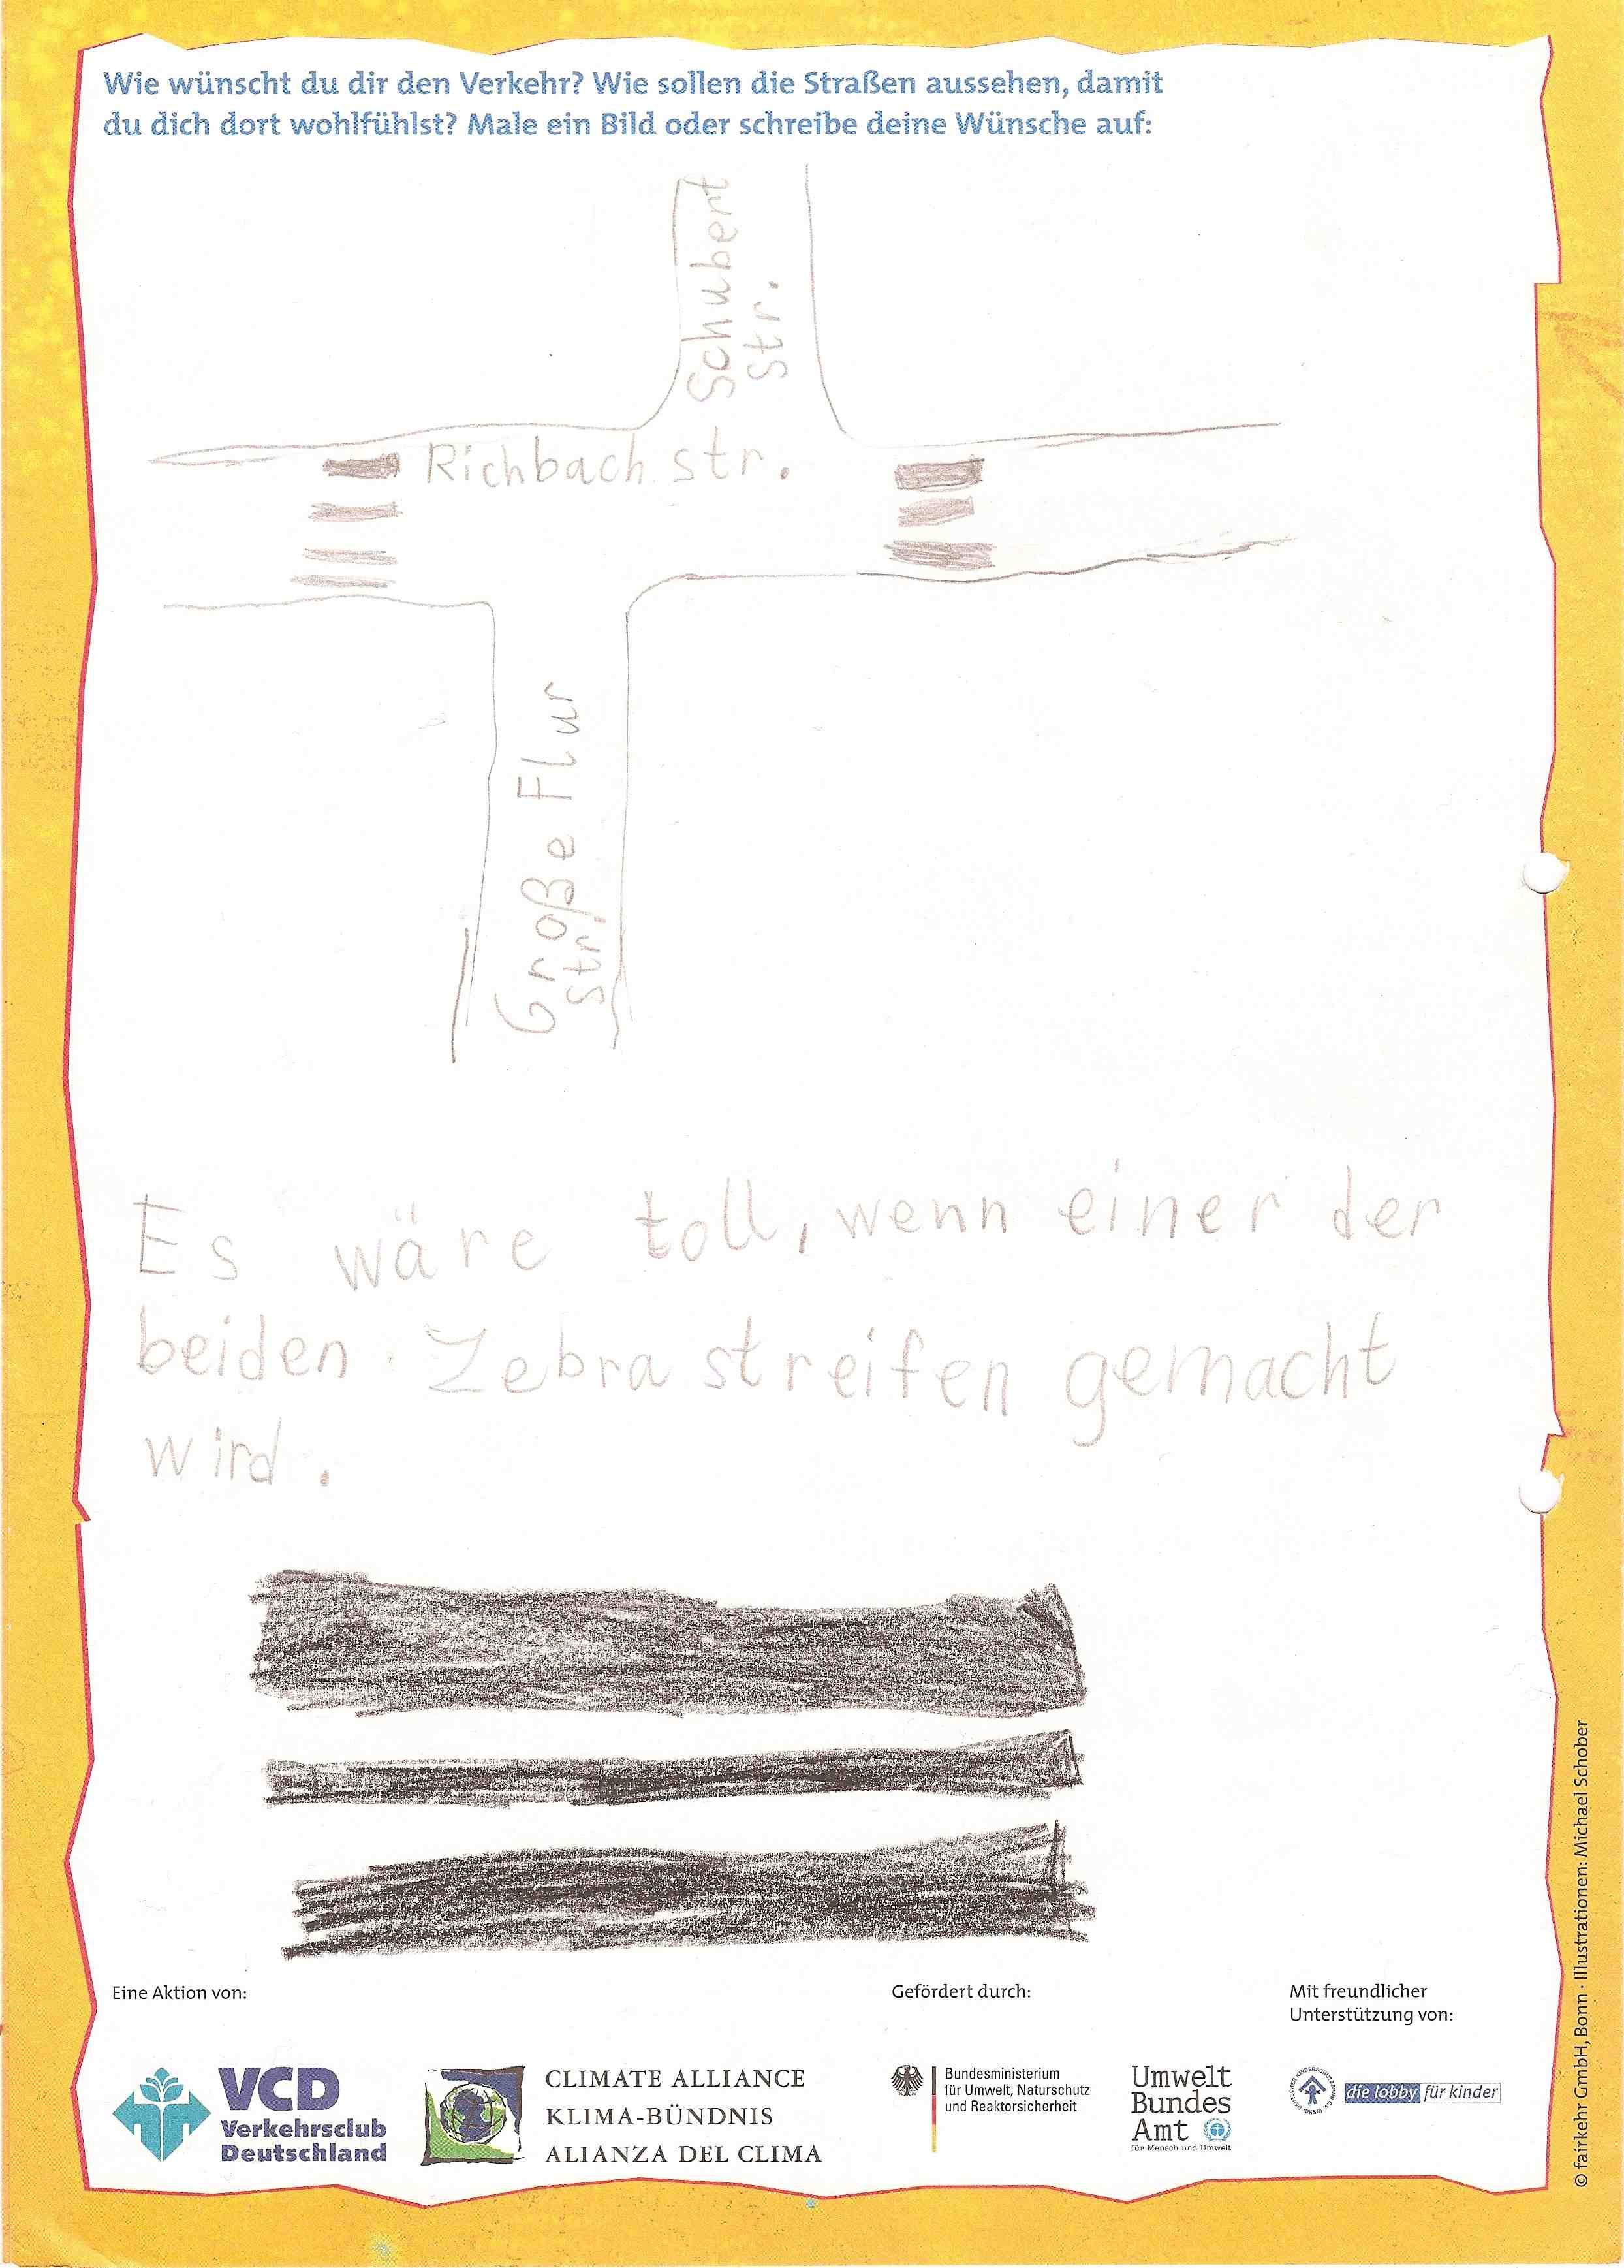 Wie wünscht du dir den Verkehr? Wie sollen die Straßen aussehen, damit
du dich dort wohlfühlst? Male ein Bild oder schreibe deine Wünsche auf:
Schubert
str.
Richbach str.
Große Flur
str.
Es wäre toll, wenn einer der
beiden Zebrastreifen gemacht
wird.
Eine Aktion von:
VCD
Verkehrsclub
Deutschland
CLIMATE ALLIANCE
KLIMA-BÜNDNIS
ALIANZA DEL CLIMA
Gefördert durch:
Bundesministerium
für Umwelt, Naturschutz
und Reaktorsicherheit
Umwelt
Bundes
Amt
für Mensch und Umwelt
Mit freundlicher
Unterstützung von:
die lobby für kinder
© fairkehr GmbH, Bonn · Illustrationen: Michael Schober